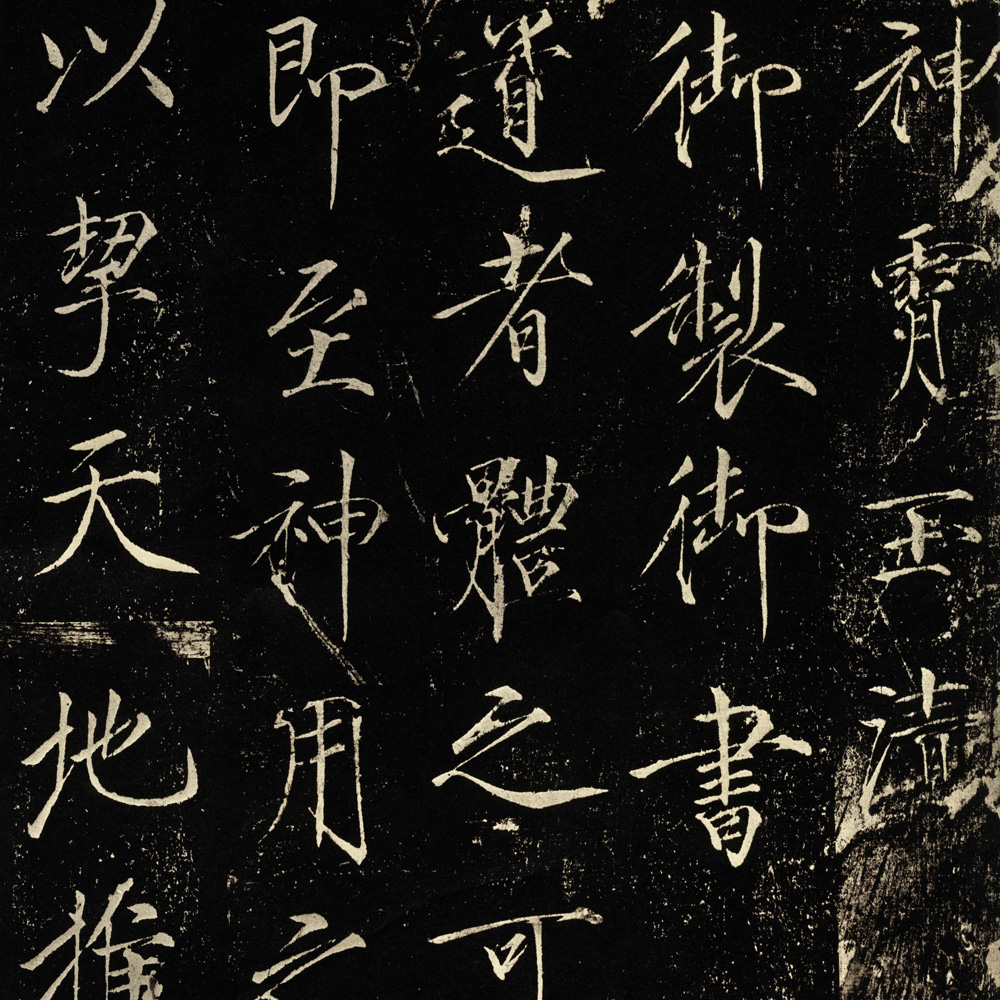 神霄玉清
御製御書
道者體之可
即至神用之
以挈天地推